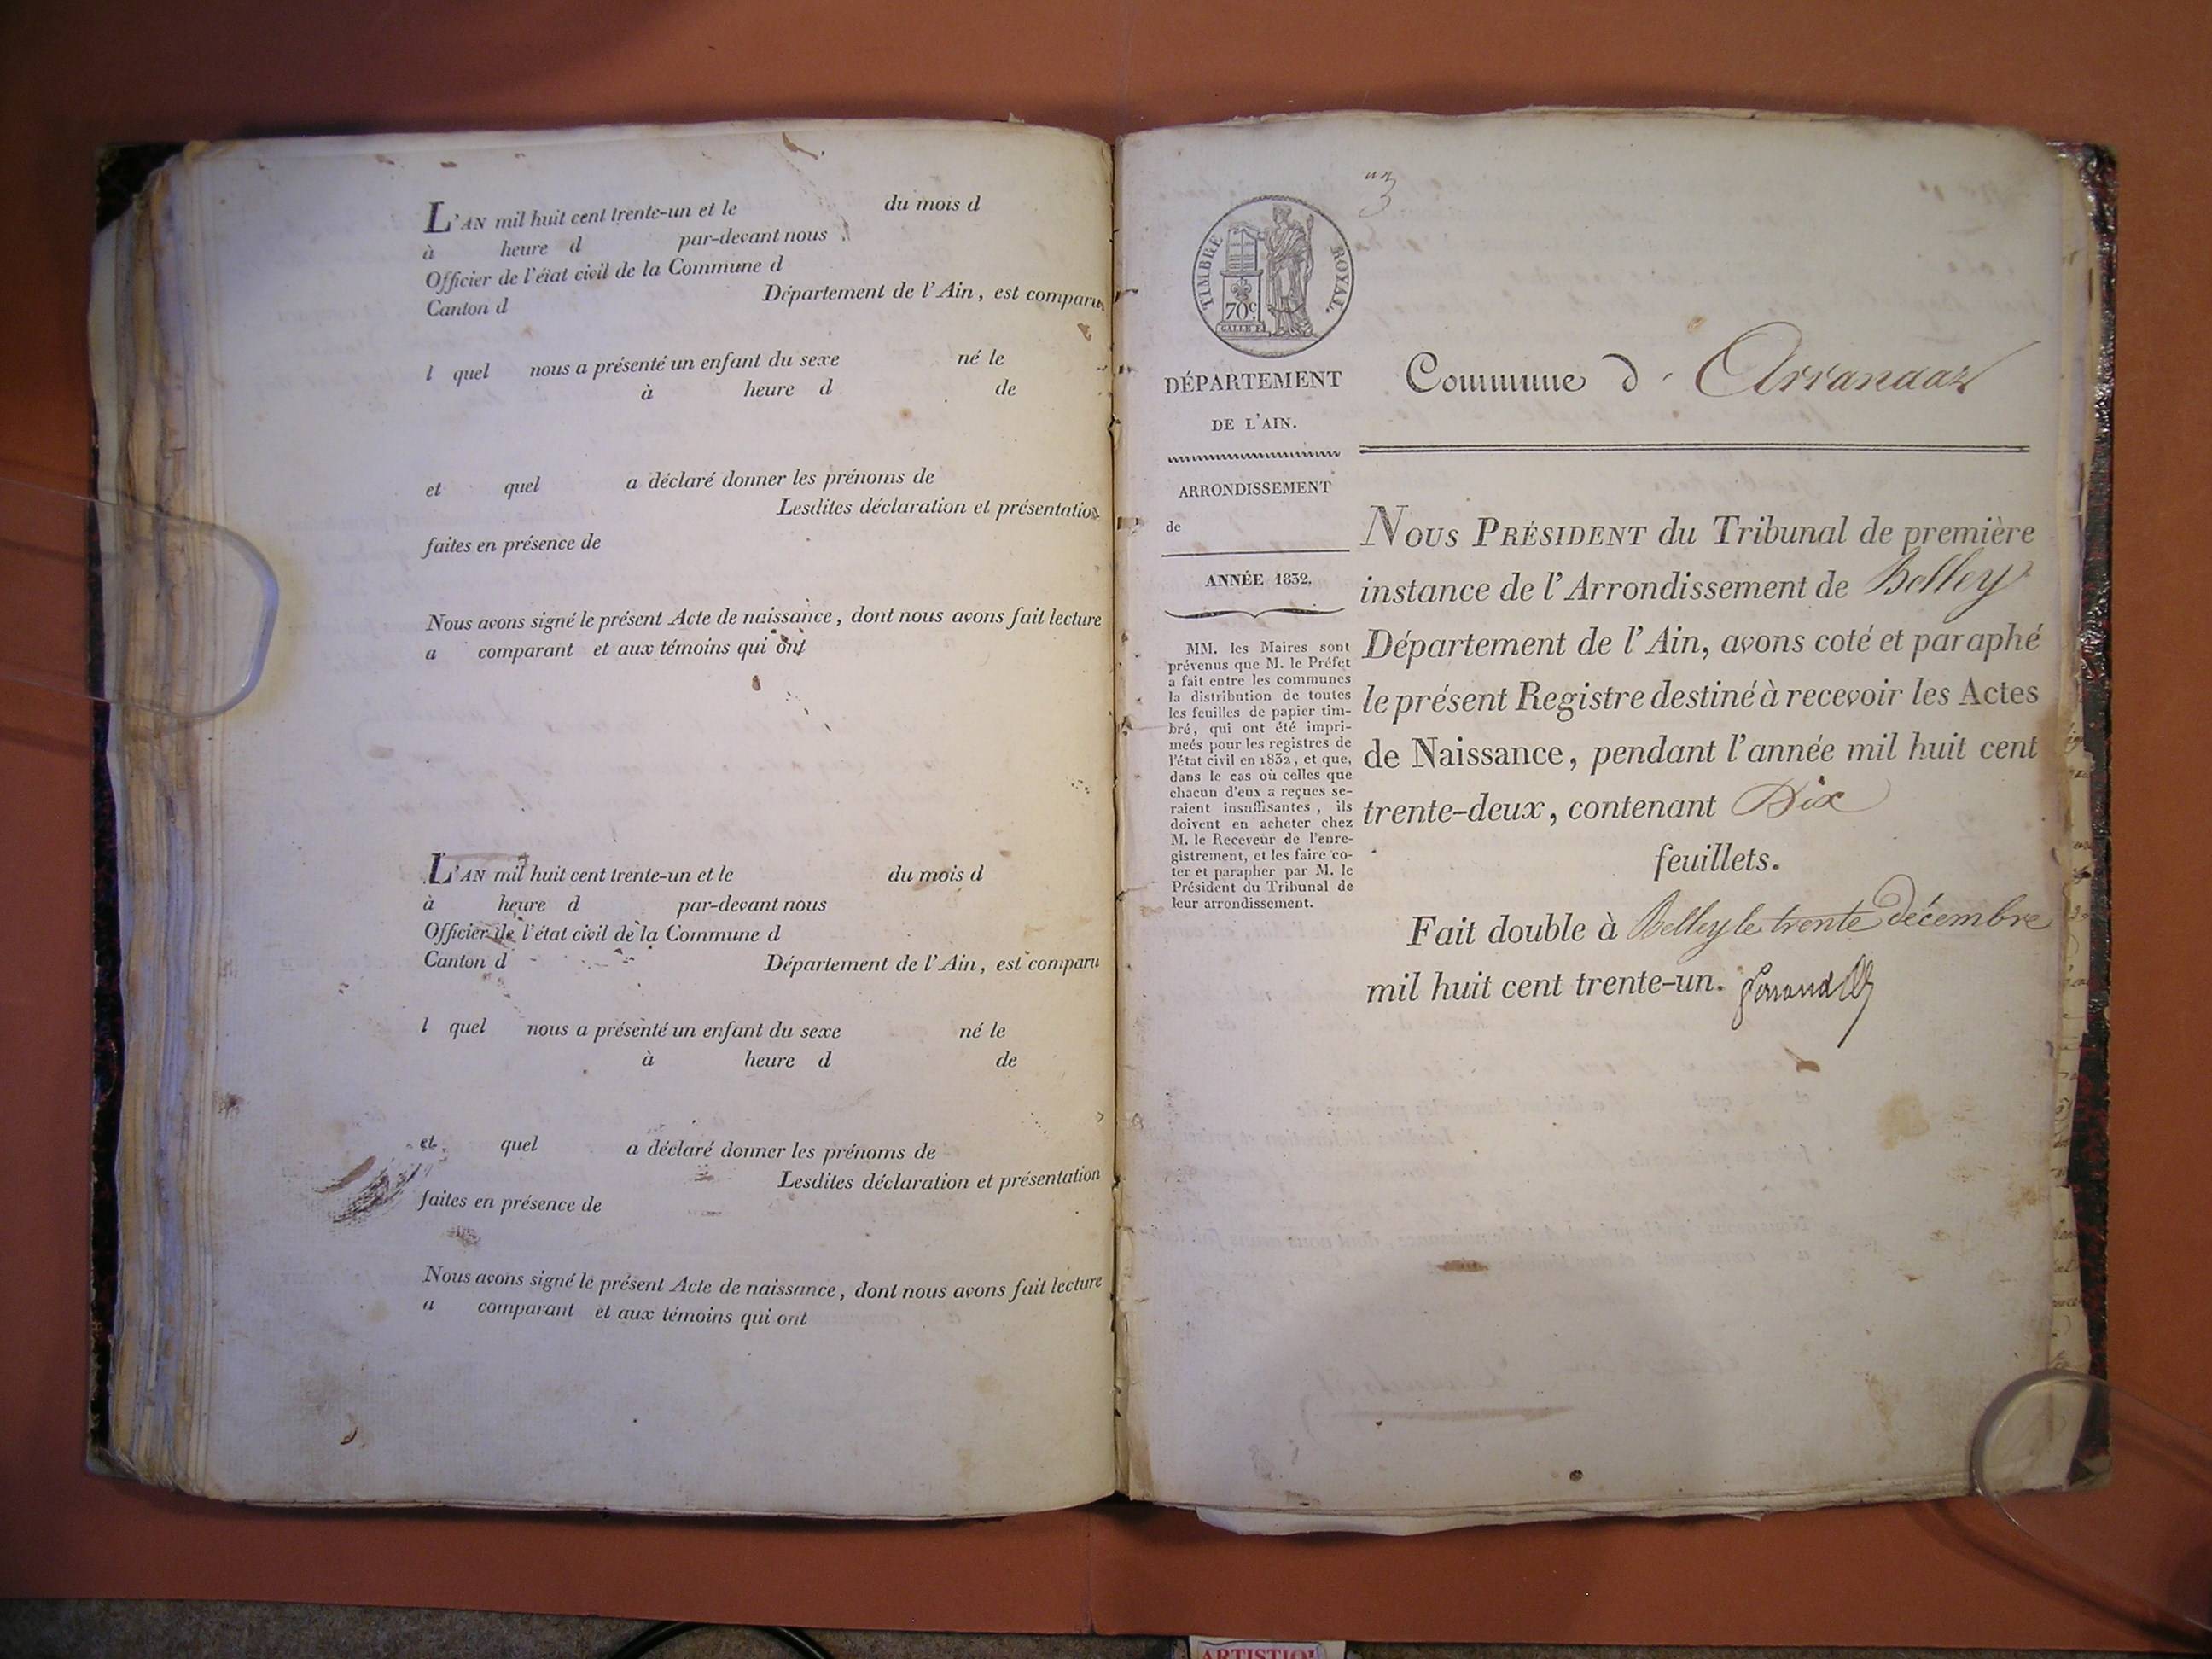 L'AN mil huit cent trente-un et le du mois d
à heure d par-devant nous
Officier de l'état civil de la Commune d
Canton d Département de l'Ain, est comparu
l quel nous a présenté un enfant du sexe né le
à heure d de
et quel a déclaré donner les prénoms de
Lesdites déclaration et présentation
faites en présence de
Nous avons signé le présent Acte de naissance, dont nous avons fait lecture
a comparant et aux témoins qui ont
L'AN mil huit cent trente-un et le du mois d
à heure d par-devant nous
Officier de l'état civil de la Commune d
Canton d Département de l'Ain, est comparu
l quel nous a présenté un enfant du sexe né le
à heure d de
et quel a déclaré donner les prénoms de
Lesdites déclaration et présentation
faites en présence de
Nous avons signé le présent Acte de naissance, dont nous avons fait lecture
a comparant et aux témoins qui ont
TIMBRE ROYAL.
70c
GALLE F.
DÉPARTEMENT
DE L'AIN.
ARRONDISSEMENT
de
ANNÉE 1832.
MM. les Maires sont
prévenus que M. le Préfet
a fait entre les communes
la distribution de toutes
les feuilles de papier tim-
bré, qui ont été impri-
meés pour les registres de
l'état civil en 1832, et que,
dans le cas où celles que
chacun d'eux a reçues se-
raient insuffisantes, ils
doivent en acheter chez
M. le Receveur de l'enre-
gistrement, et les faire co-
ter et parapher par M. le
Président du Tribunal de
leur arrondissement.
Commune d' Arrandaz
NOUS PRÉSIDENT du Tribunal de première
instance de l'Arrondissement de Belley
Département de l'Ain, avons coté et paraphé
le présent Registre destiné à recevoir les Actes
de Naissance, pendant l'année mil huit cent
trente-deux, contenant Dix
feuillets.
Fait double à Belley le trente décembre
mil huit cent trente-un.
ARTISTIQU